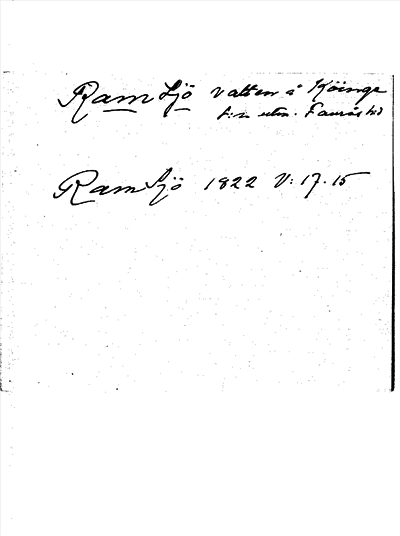 Ramsjö vatten å Köinge
f:n utm. Faurås hd
Ramsjö 1822 V: 17.15